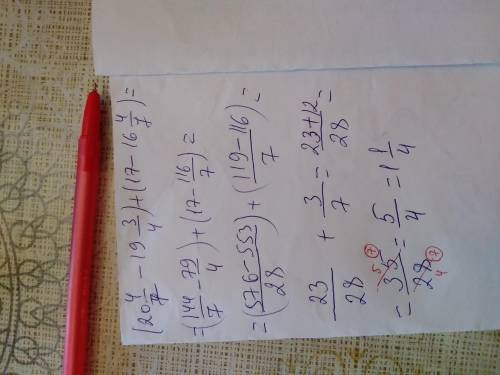 (20 4/7 - 19 3/4) + (17 - 16 4/7) =
= (144/7 - 79/4) + (17 - 116/7) =
= (576 - 553)/28 + (119 - 116)/7 =
23/28 + 3/7 = (23 + 12)/28 =
= 35/28 = 5/4 = 1 1/4
5 (7)
4 (7)